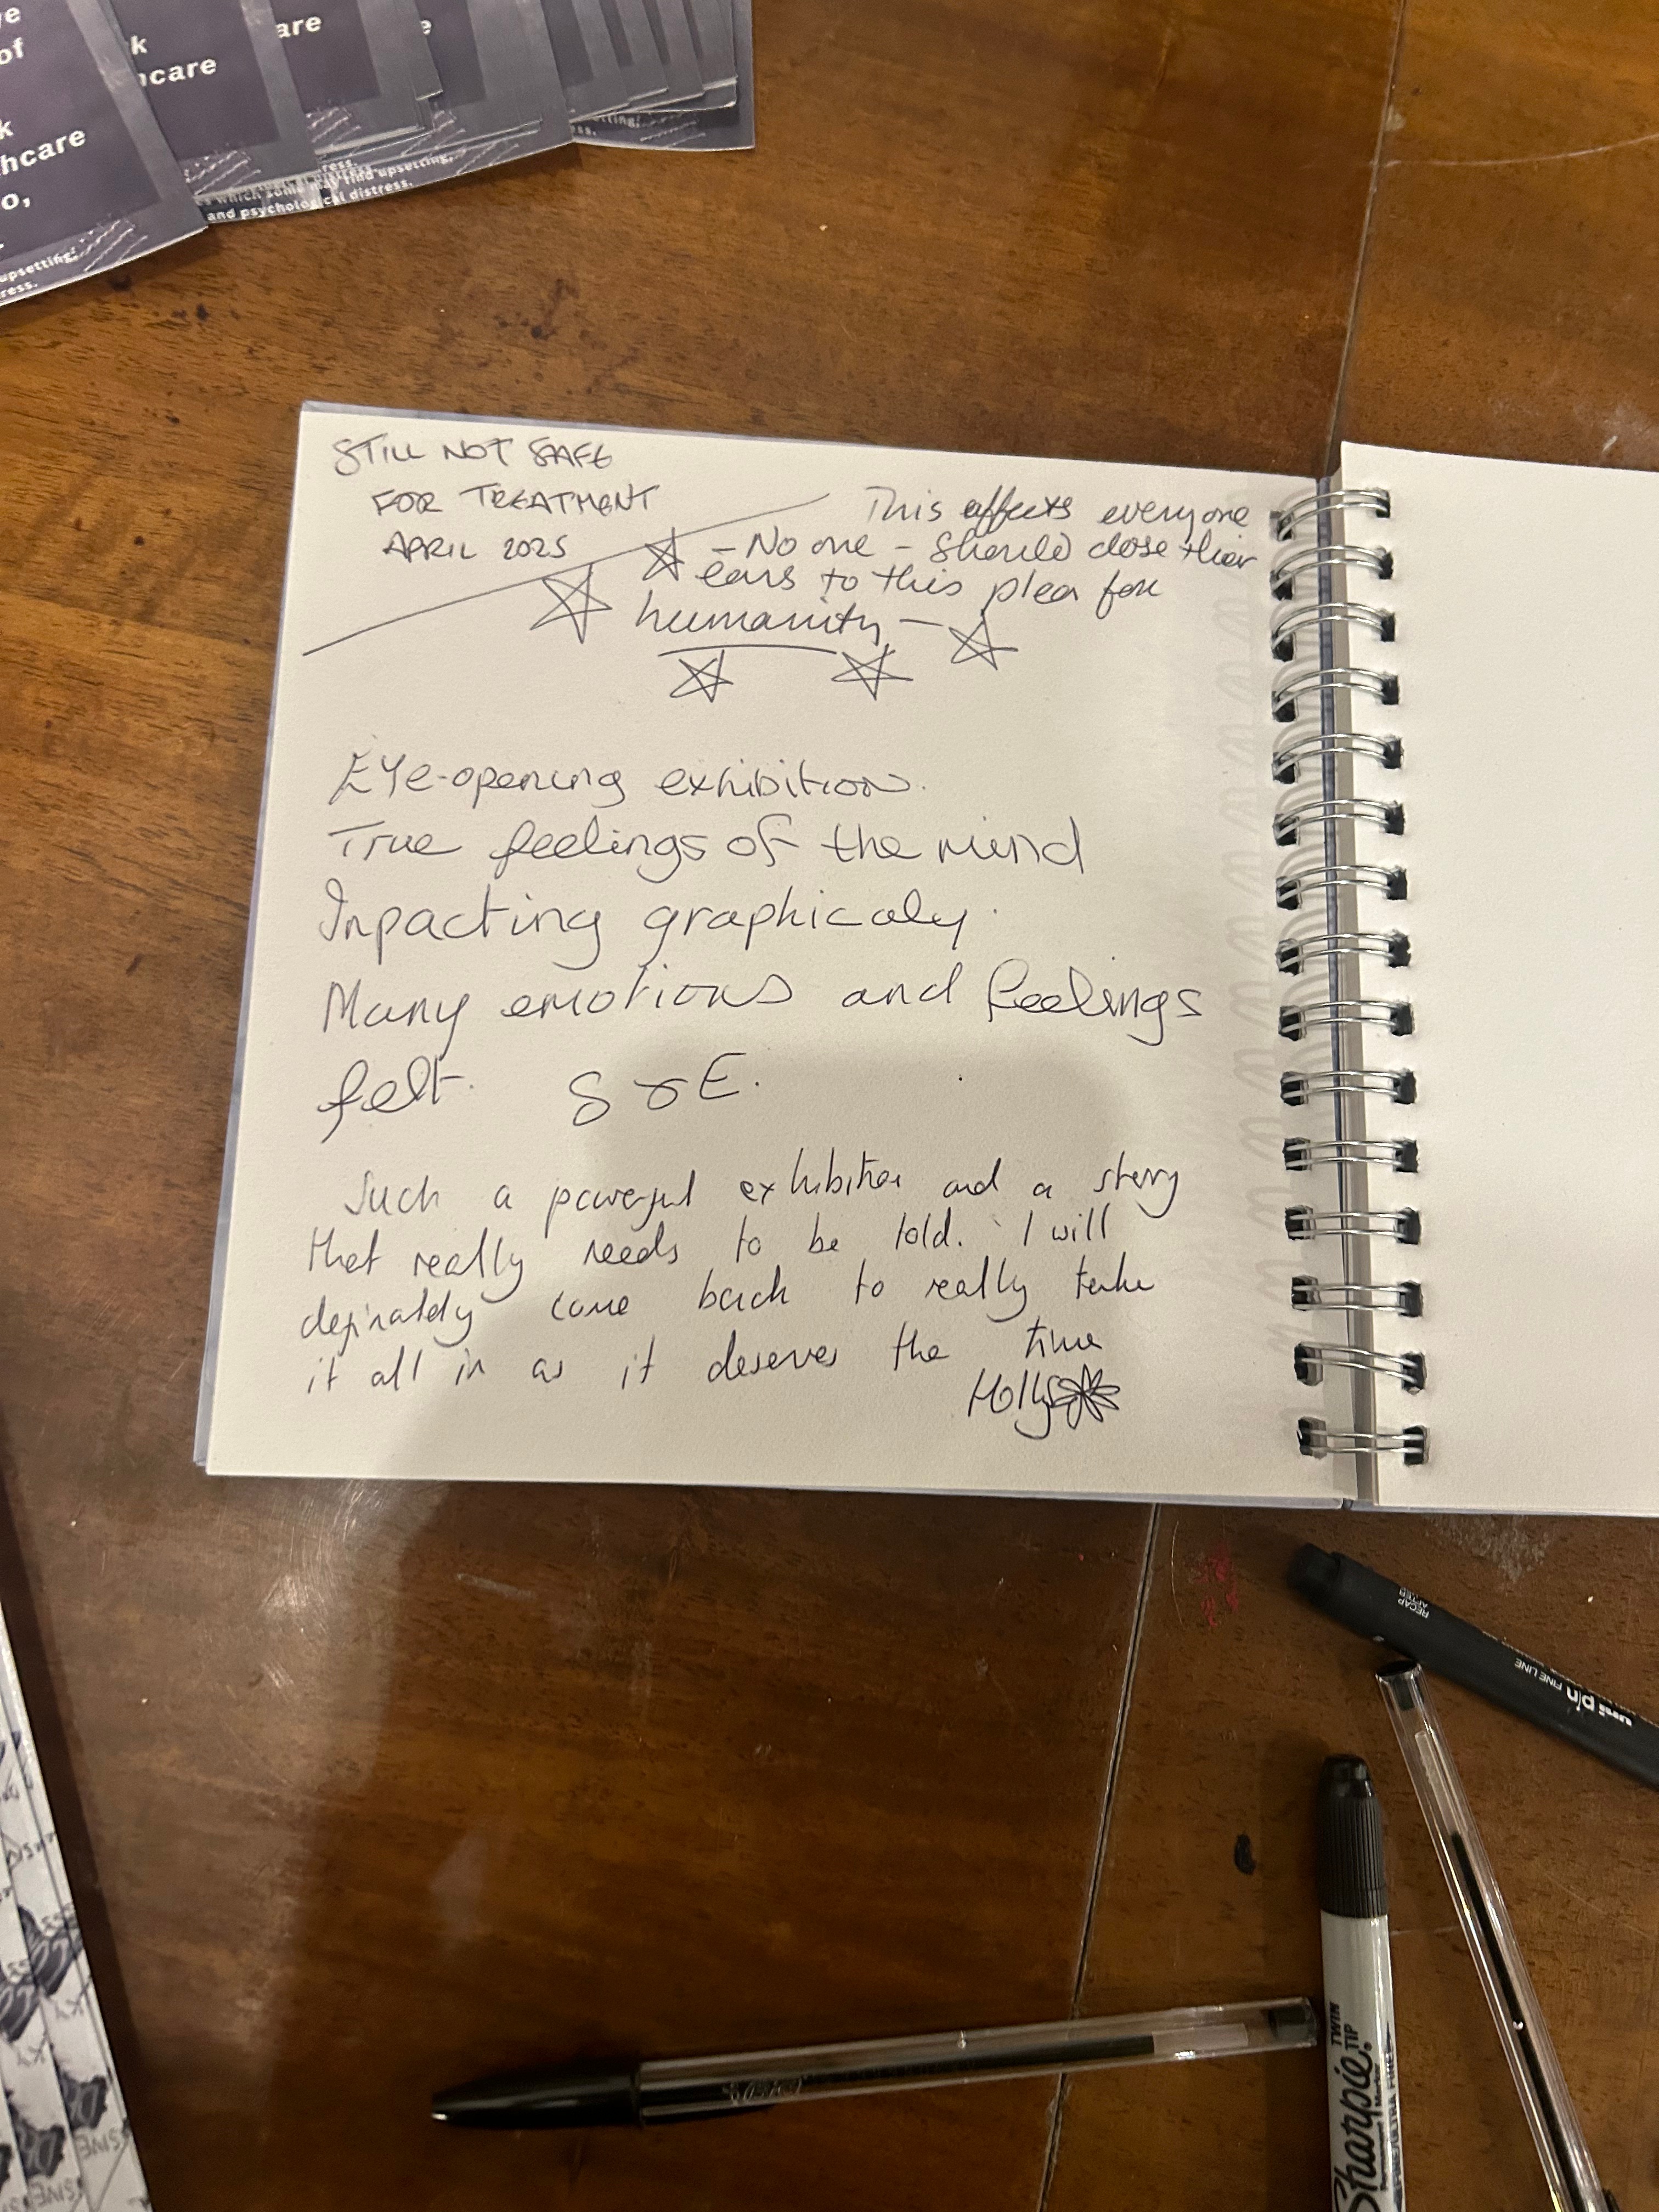 ye
of
k
hcare
o,
upsetting,
ress.
k
hcare
are
e
ress.
which some may find upsetting,
and psychological distress.
STILL NOT SAFE
FOR TREATMENT
APRIL 2025
This affects everyone
- No one - should close thier
ears to this plea for
humanity -
EYe-opening exhibition.
True feelings of the mind
Inpacting graphicaly.
Many emotions and feelings
felt. S & E.
Such a powerful exhibition and a story
that really needs to be told. I will
definatley come back to really take
it all in as it deserves the time
Holly
RECAP
AFTER
uni pin FINE LINE
TWIN
TIP
Sharpie